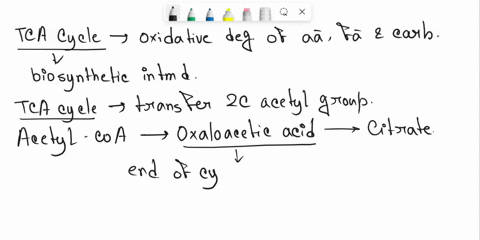 TCA Cycle → oxidative deg of aā, fā & carb.
↓
biosynthetic intmd.
TCA cycle → transfer 2C acetyl group.
Acetyl-coA → Oxaloacetic acid → Citrate
↓
end of cy